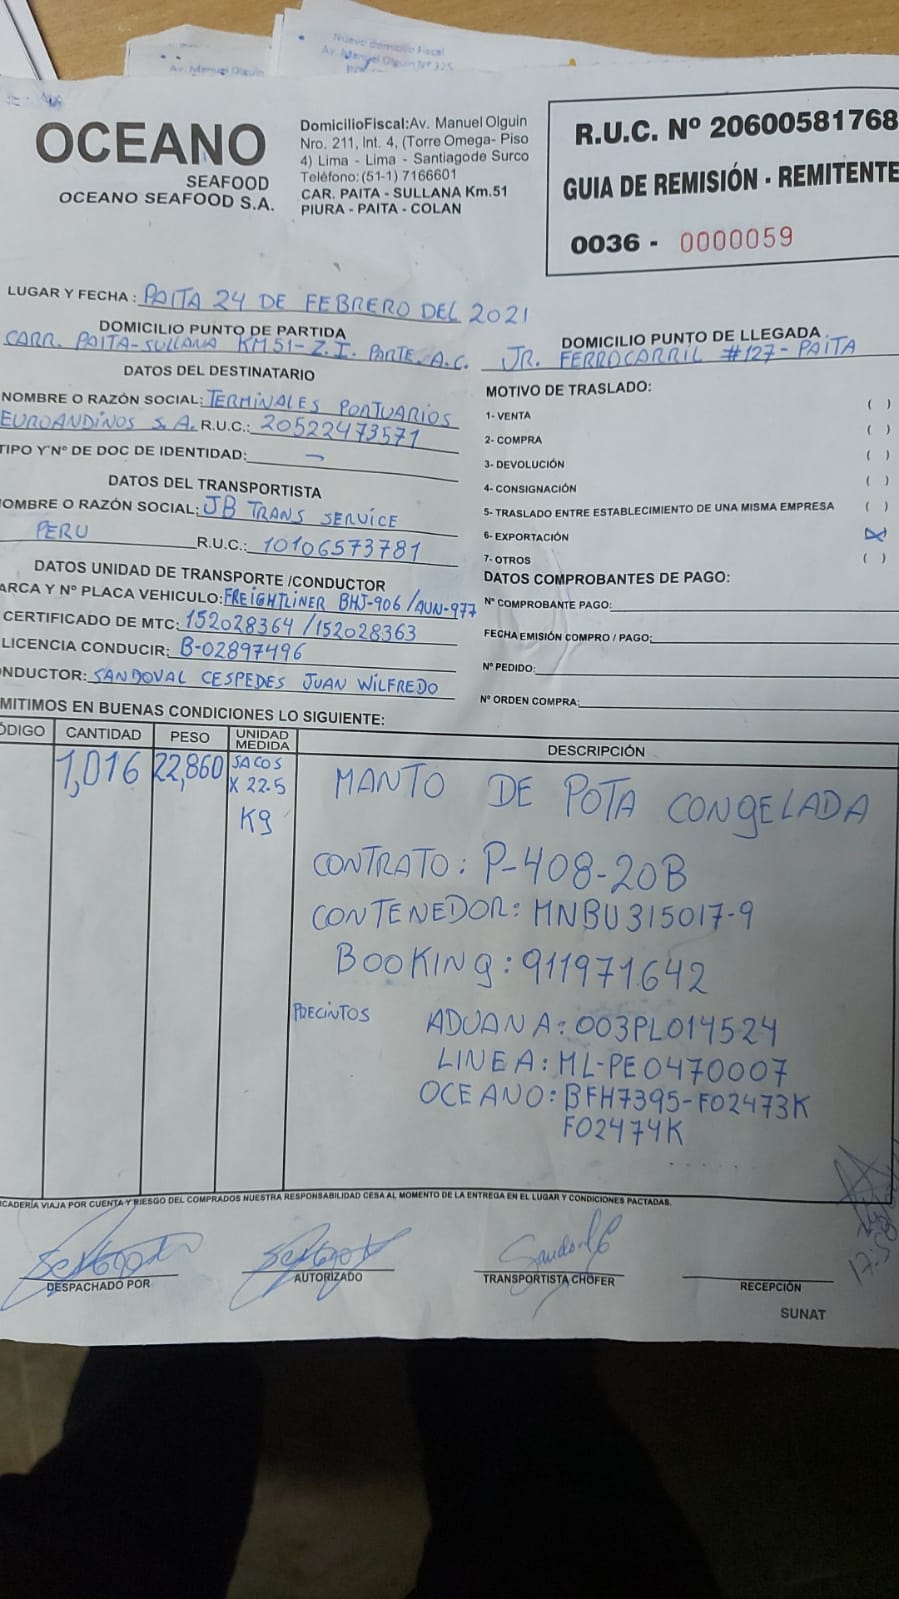 Nuevo domicilio Fiscal
Av. Manuel Olguin Nº 325
Av. Manuel Olguin
OCEANO
SEAFOOD
OCEANO SEAFOOD S.A.
DomicilioFiscal:Av. Manuel Olguin
Nro. 211, Int. 4, (Torre Omega- Piso
4) Lima - Lima - Santiagode Surco
Teléfono:(51-1) 7166601
CAR. PAITA - SULLANA Km.51
PIURA - PAITA - COLAN
R.U.C. Nº 20600581768
GUIA DE REMISIÓN - REMITENTE
0036 - 0000059
LUGAR Y FECHA : PAITA 24 DE FEBRERO DEL 2021
DOMICILIO PUNTO DE PARTIDA
CARR. PAITA-SULLANA KM51-Z.I. PARTE.A.C.
DOMICILIO PUNTO DE LLEGADA
JR. FERROCARRIL #127-PAITA
DATOS DEL DESTINATARIO
NOMBRE O RAZÓN SOCIAL: TERMINALES PORTUARIOS
EUROANDINOS S.A. R.U.C.: 20522473571
TIPO Y Nº DE DOC DE IDENTIDAD: —
DATOS DEL TRANSPORTISTA
NOMBRE O RAZÓN SOCIAL: JB TRANS SERVICE
PERU R.U.C.: 10106573781
DATOS UNIDAD DE TRANSPORTE /CONDUCTOR
ARCA Y Nº PLACA VEHICULO: FREIGHTLINER BHJ-906/AUN-977
CERTIFICADO DE MTC: 152028364/152028363
LICENCIA CONDUCIR: B-02897496
ONDUCTOR: SANDOVAL CESPEDES JUAN WILFREDO
MOTIVO DE TRASLADO:
1- VENTA ( )
2- COMPRA ( )
3- DEVOLUCIÓN ( )
4- CONSIGNACIÓN ( )
5- TRASLADO ENTRE ESTABLECIMIENTO DE UNA MISMA EMPRESA ( )
6- EXPORTACIÓN (X)
7- OTROS ( )
DATOS COMPROBANTES DE PAGO:
Nº COMPROBANTE PAGO:
FECHA EMISIÓN COMPRO / PAGO:
Nº PEDIDO:
Nº ORDEN COMPRA:
MITIMOS EN BUENAS CONDICIONES LO SIGUIENTE:
ÓDIGO CANTIDAD PESO UNIDAD MEDIDA DESCRIPCIÓN
1,016 22,860 SACOS X 22.5 Kg
MANTO DE POTA CONGELADA
CONTRATO: P-408-20B
CONTENEDOR: MNBU315017-9
BOOKING: 911971642
PRECINTOS ADUANA: 003PL014524
LINEA: ML-PE0470007
OCEANO: BFH7395-F02473K
F02474K
CADERÍA VIAJA POR CUENTA Y RIESGO DEL COMPRADOS NUESTRA RESPONSABILIDAD CESA AL MOMENTO DE LA ENTREGA EN EL LUGAR Y CONDICIONES PACTADAS.
DESPACHADO POR
AUTORIZADO
TRANSPORTISTA CHOFER
RECEPCIÓN
SUNAT